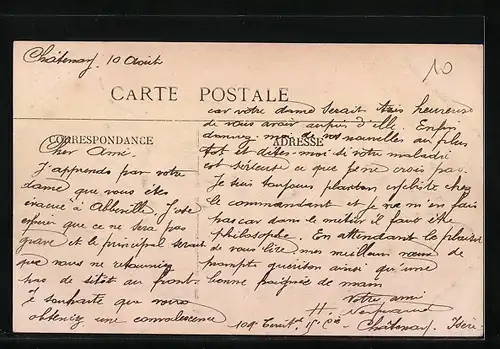 Châtenay 10 Août
10
CARTE POSTALE
CORRESPONDANCE
ADRESSE
Cher Ami.
J'apprends par votre
dame que vous êtes
évacué à Abbeville. J'ose
espérer que ce ne sera pas
grave et le principal serait
que vous ne retourniez
pas de sitôt au front.
Je souhaite que vous
obteniez une convalescence
car votre dame serait très heureuse
de vous avoir auprès d'elle. Enfin
donnez-moi de vos nouvelles au plus
tôt et dites-moi si votre maladie
est sérieuse ce que je ne crois pas.
Je suis toujours planton cycliste chez
le commandant et je ne m'en fais
pas car dans le métier il faut être
philosophe. En attendant le plaisir
de vous lire, mes meilleurs vœux de
prompte guérison ainsi qu'une
bonne poignée de main
Votre ami
H.
109 Territ. Châtenay. Isère